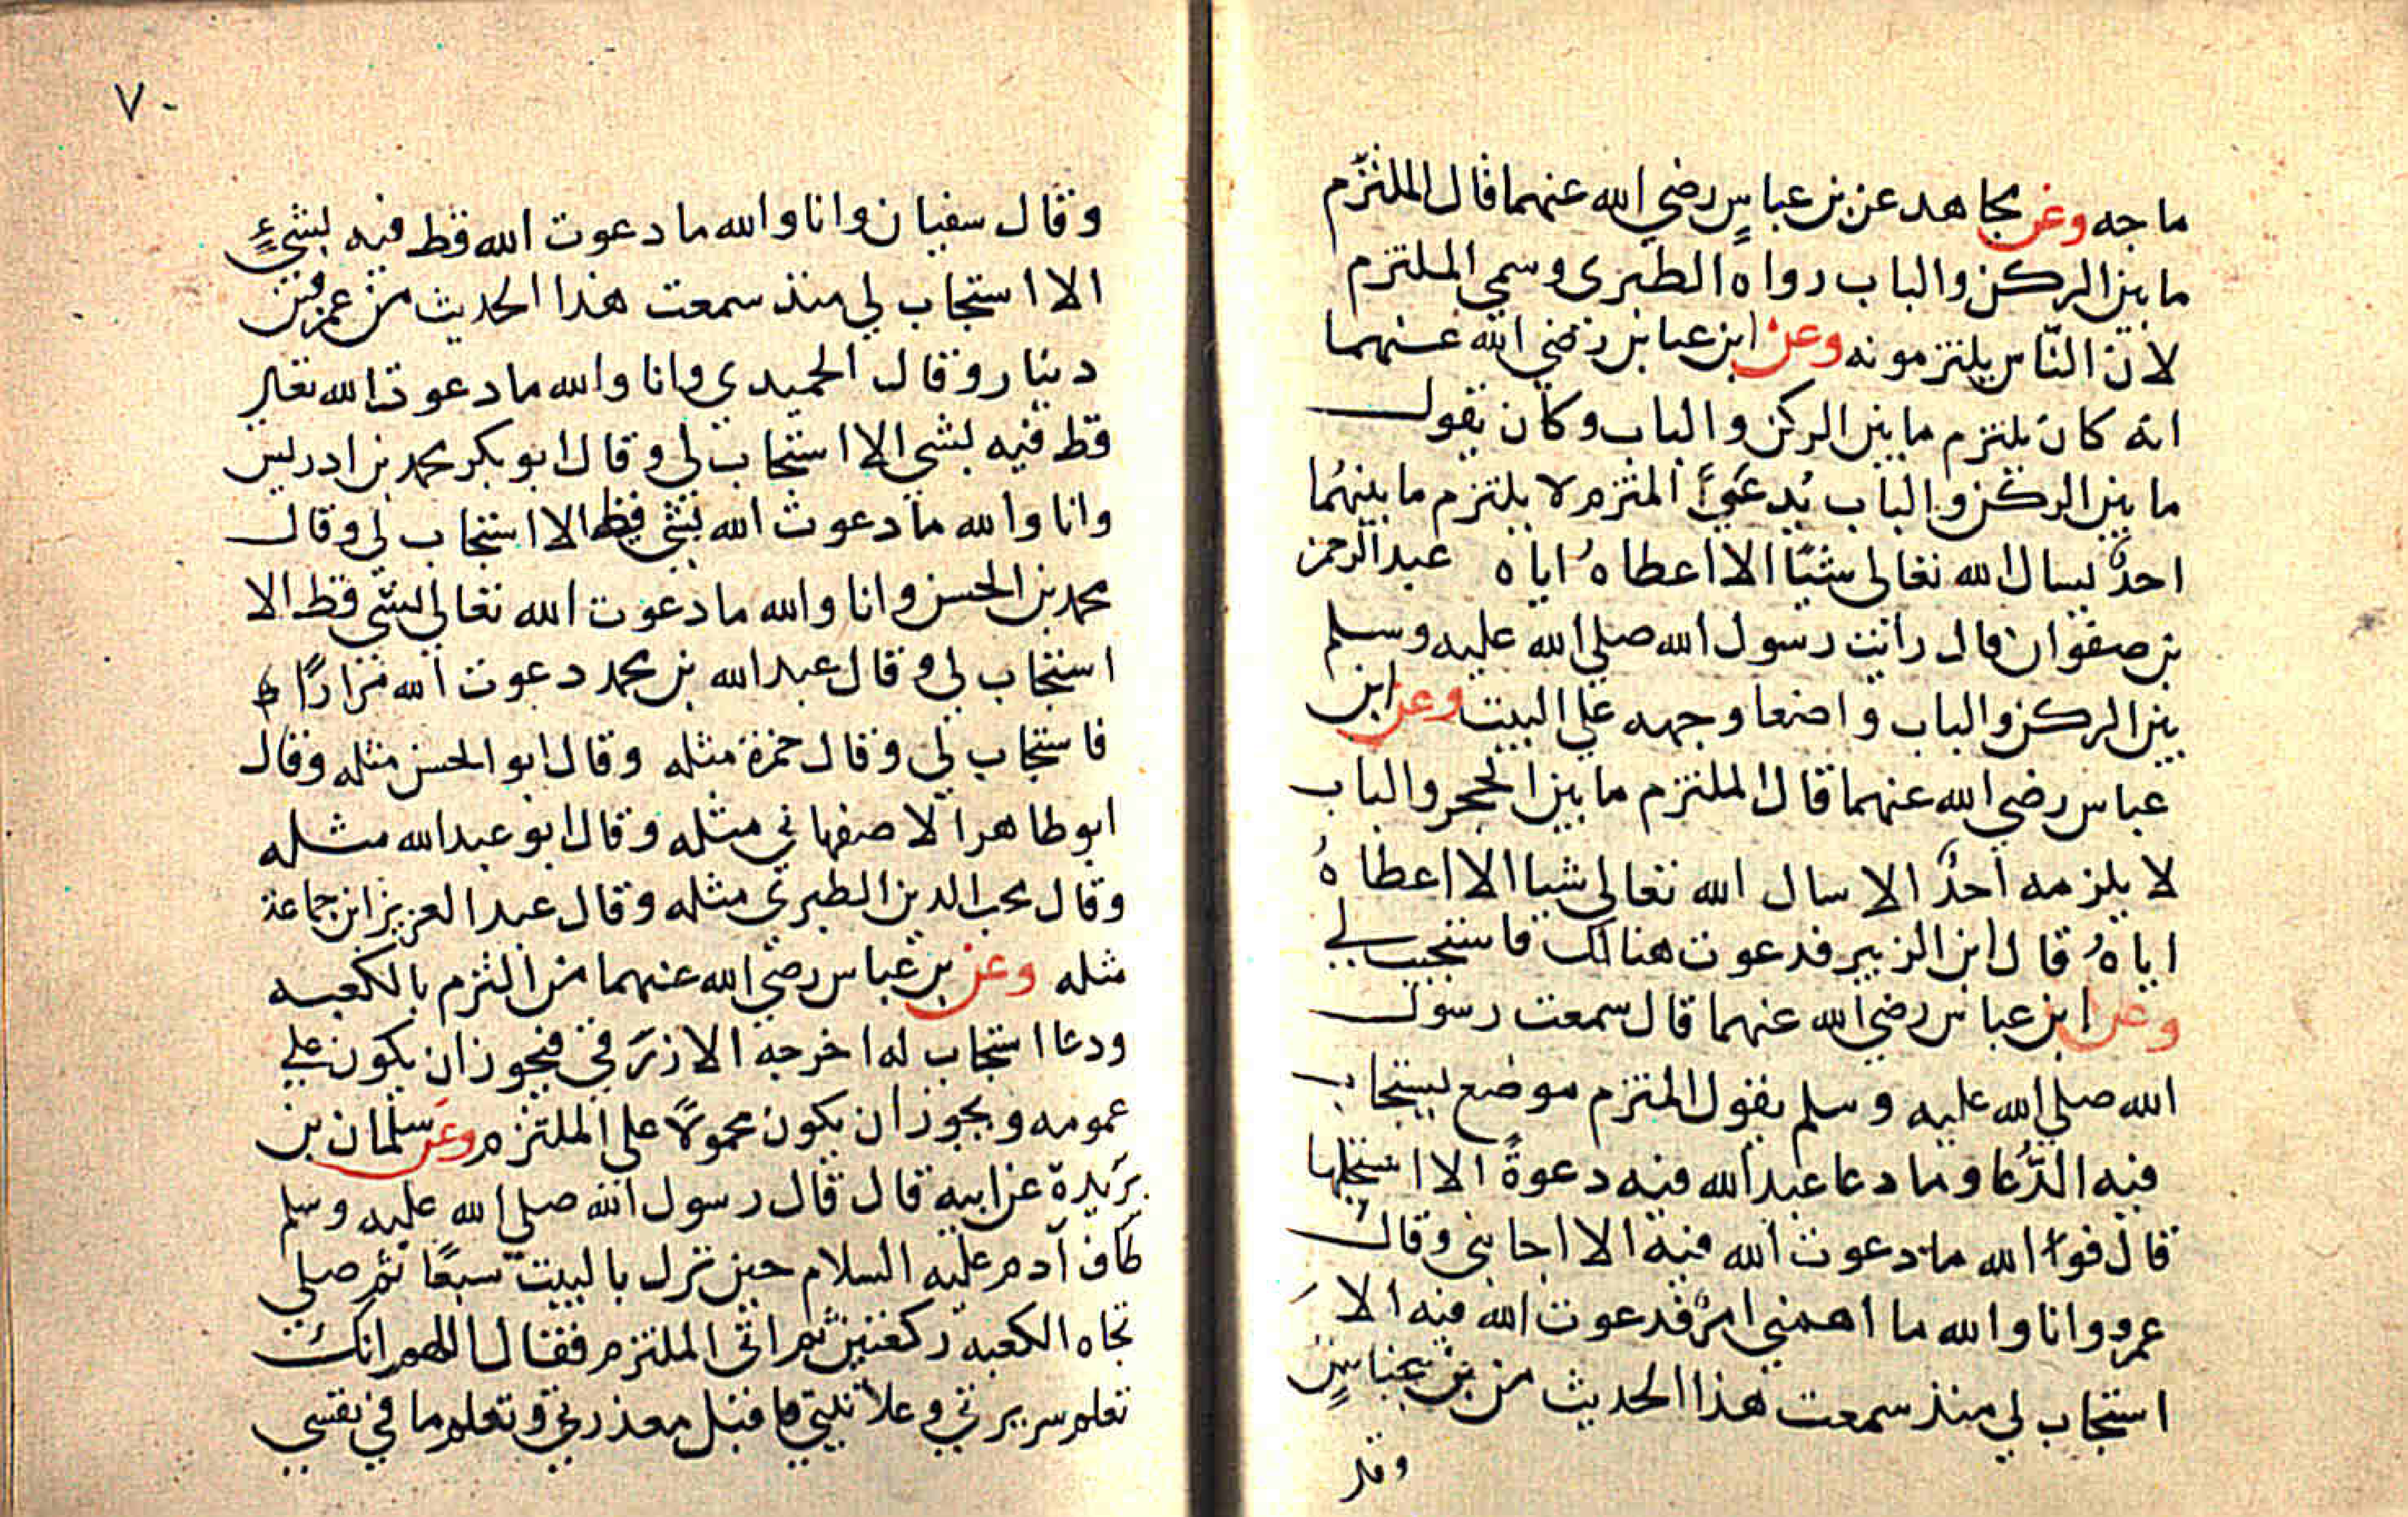 ماجه وعن مجاهد عن بن عباسٍ رضي الله عنهما قال الملتزم
ما بين الركن والباب رواه الطبري وسمي الملتزم
لان النّاس يلتزمونه وعن ابن عباس رضي الله عنهما
انه كان يلتزم ما بين الركن والباب وكان يقول
ما بين الركن والباب يُدعَيَ الملتزم لا يلتزم ما بينهُما
احدٌ يسال الله تعالى شيًا الا اعطاهُ اياه عبد الرحمن
بن صفوان قال رايت رسول الله صلي الله عليه وسلم
بين الركن والباب واضعا وجهه علي البيت وعن ابن
عباس رضي الله عنهما قال الملتزم ما بين الحجر والباب
لا يلزمه احدٌ الا سال الله تعالي شيا الا اعطاهُ
اياهُ قال ابن الزبير فدعوت هنالك فاستجيب لي
وعن ابن عباس رضي الله عنهما قال سمعت رسول
الله صلي الله عليه وسلم يقول الملتزم موضع يستجاب
فيه الدُّعا وما دعا عبد الله فيه دعوةً الا استجابها
قال فوالله ما دعوت الله فيه الا اجابني وقال
عمرو وانا والله ما اهمني امرٌ فدعوت الله فيه الا
استجاب لي منذ سمعت هذا الحديث من بن عباسٍ
وقد
٧٠
وقال سفيان وانا والله ما دعوت الله قط فيه بشيءٍ
الا استجاب لي منذ سمعت هذا الحديث من عمرو بن
دينار وقال الحميدي وانا والله ما دعوت الله تعالي
قط فيه بشي الا استجاب لي وقال ابو بكر محمد بن ادريس
وانا والله ما دعوت الله بشي قط الا استجاب لي وقال
محمد بن الحسن وانا والله ما دعوت الله تعالي بشي قط الا
استجاب لي وقال عبد الله بن محمد دعوت الله مرارًا
فاستجاب لي وقال حمزة مثله وقال ابو الحسن مثله وقال
ابو طاهر الاصفهاني مثله وقال ابو عبد الله مثله
وقال محب الدين الطبري مثله وقال عبد العزيز ابن جماعة
مثله وعن بن عباس رضي الله عنهما من التزم بالكعبه
ودعا استجاب له اخرجه الازرَقي فيجوز ان يكون علي
عمومه ويجوز ان يكون محمولاً علي الملتزم وعن سلمان بن
بَريدة عن ابيه قال قال رسول الله صلي الله عليه وسلم
طاف آدم عليه السلام حين نزل بالبيت سبعًا ثم صلي
تجاه الكعبه ركعتين ثم اتى الملتزم فقال اللهم انك
تعلم سريرتي وعلانيتي فاقبل معذرتي وتعلم ما في نفسي